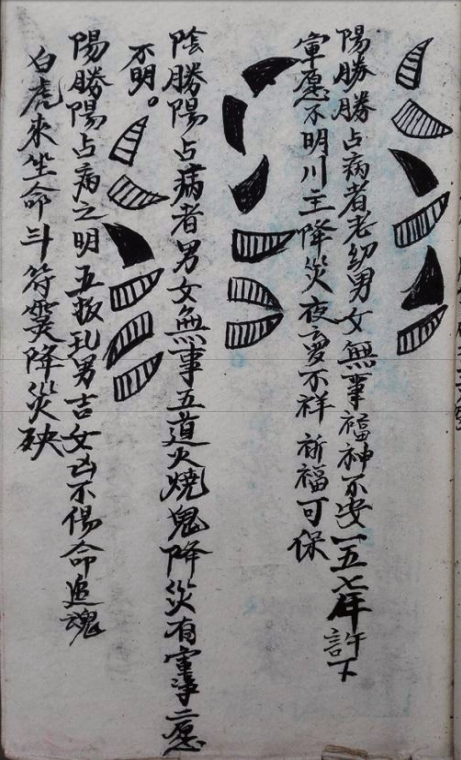 陽勝勝占病者老幼男女無事福神不安一五七年許下
愿不明川主降災夜夢不祥祈福可保
陰勝陽占病者男女無事五道火燒鬼降災有二愿
不明。
陽勝陽占病之明五叛乱男吉女凶不傷命追魂
白虎來坐命斗符降災殃